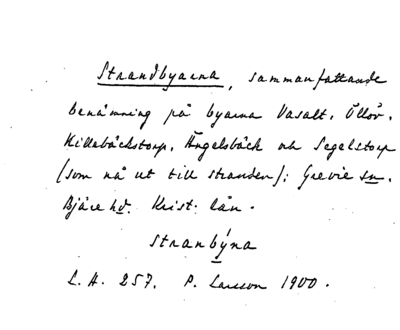 Strandbyarna, sammanfattande
benämning på byarna Vasalt, Öllöv,
Killebäckstorp, Ängelsbäck och Segelstorp
(som nå ut till stranden); Grevie sn.
Bjäre hd. Krist. län.
stranbýna
L. H. 257. P. Larsson 1900.